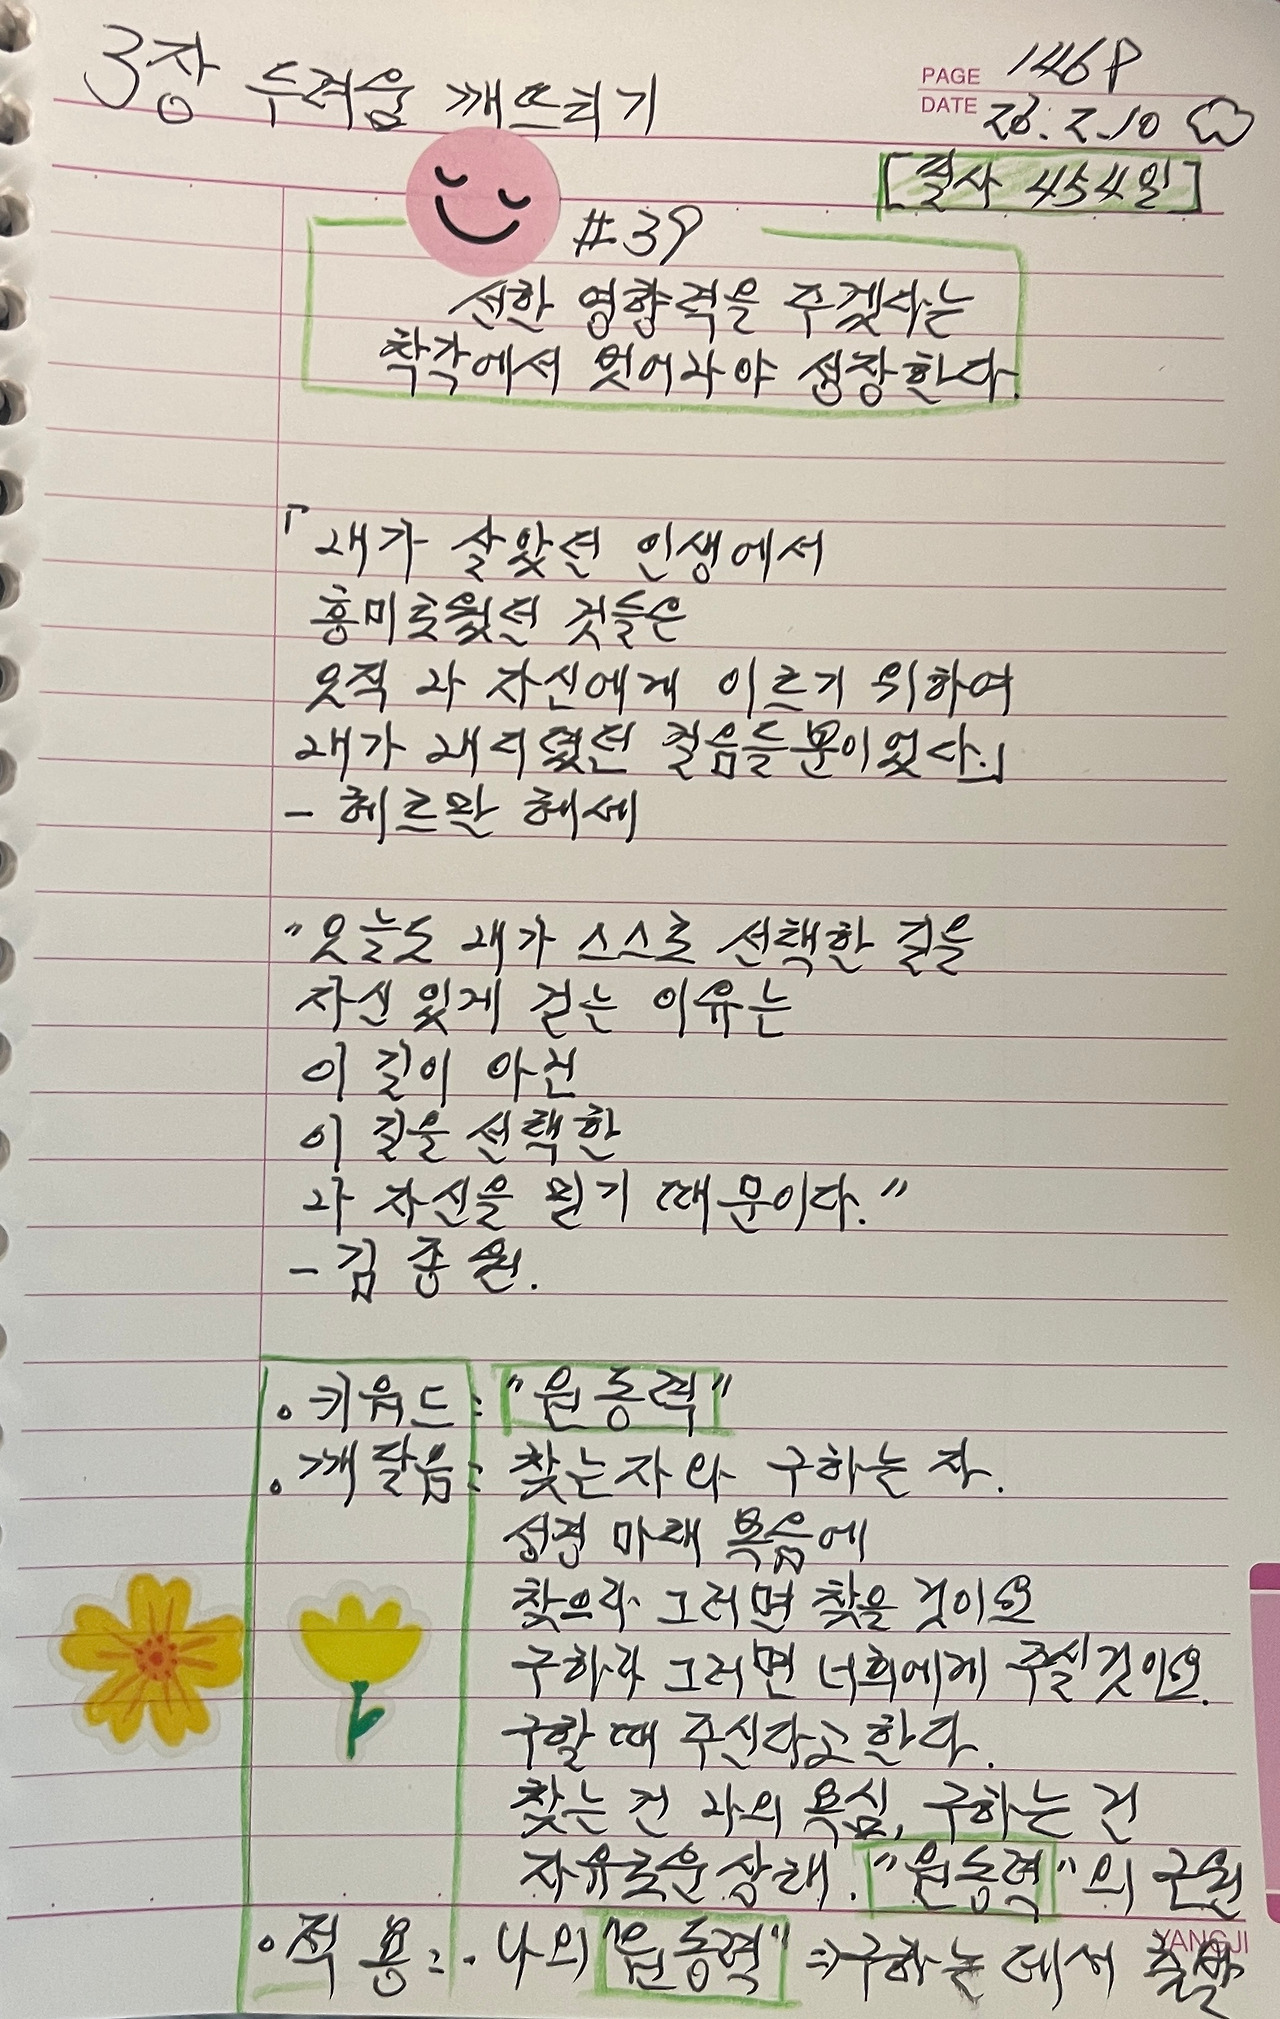 3장 두려움 깨뜨리기
PAGE 146P
DATE 26. 2. 10
[필사 454일]
#39
선한 영향력을 주겠다는
착각에서 벗어나야 성장한다.
「내가 살았던 인생에서
흥미로웠던 것들은
오직 나 자신에게 이르기 위하여
내가 내디뎠던 걸음들뿐이었다.」
- 헤르만 헤세
"오늘도 내가 스스로 선택한 길을
자신 있게 걷는 이유는
이 길이 아닌
이 길을 선택한
나 자신을 믿기 때문이다."
- 김종원.
• 키워드 : "원동력"
• 깨달음 : 찾는자와 구하는 자.
성경 마태 복음에
찾으라 그러면 찾을 것이요
구하라 그러면 너희에게 주실것이요.
구할 때 주신다고 한다.
찾는 건 나의 욕심, 구하는 건
자유로운 상태. "원동력"의 근원
• 적용 : · 나의 "원동력" ⇒ 구하는 데서 출발
YANGJI